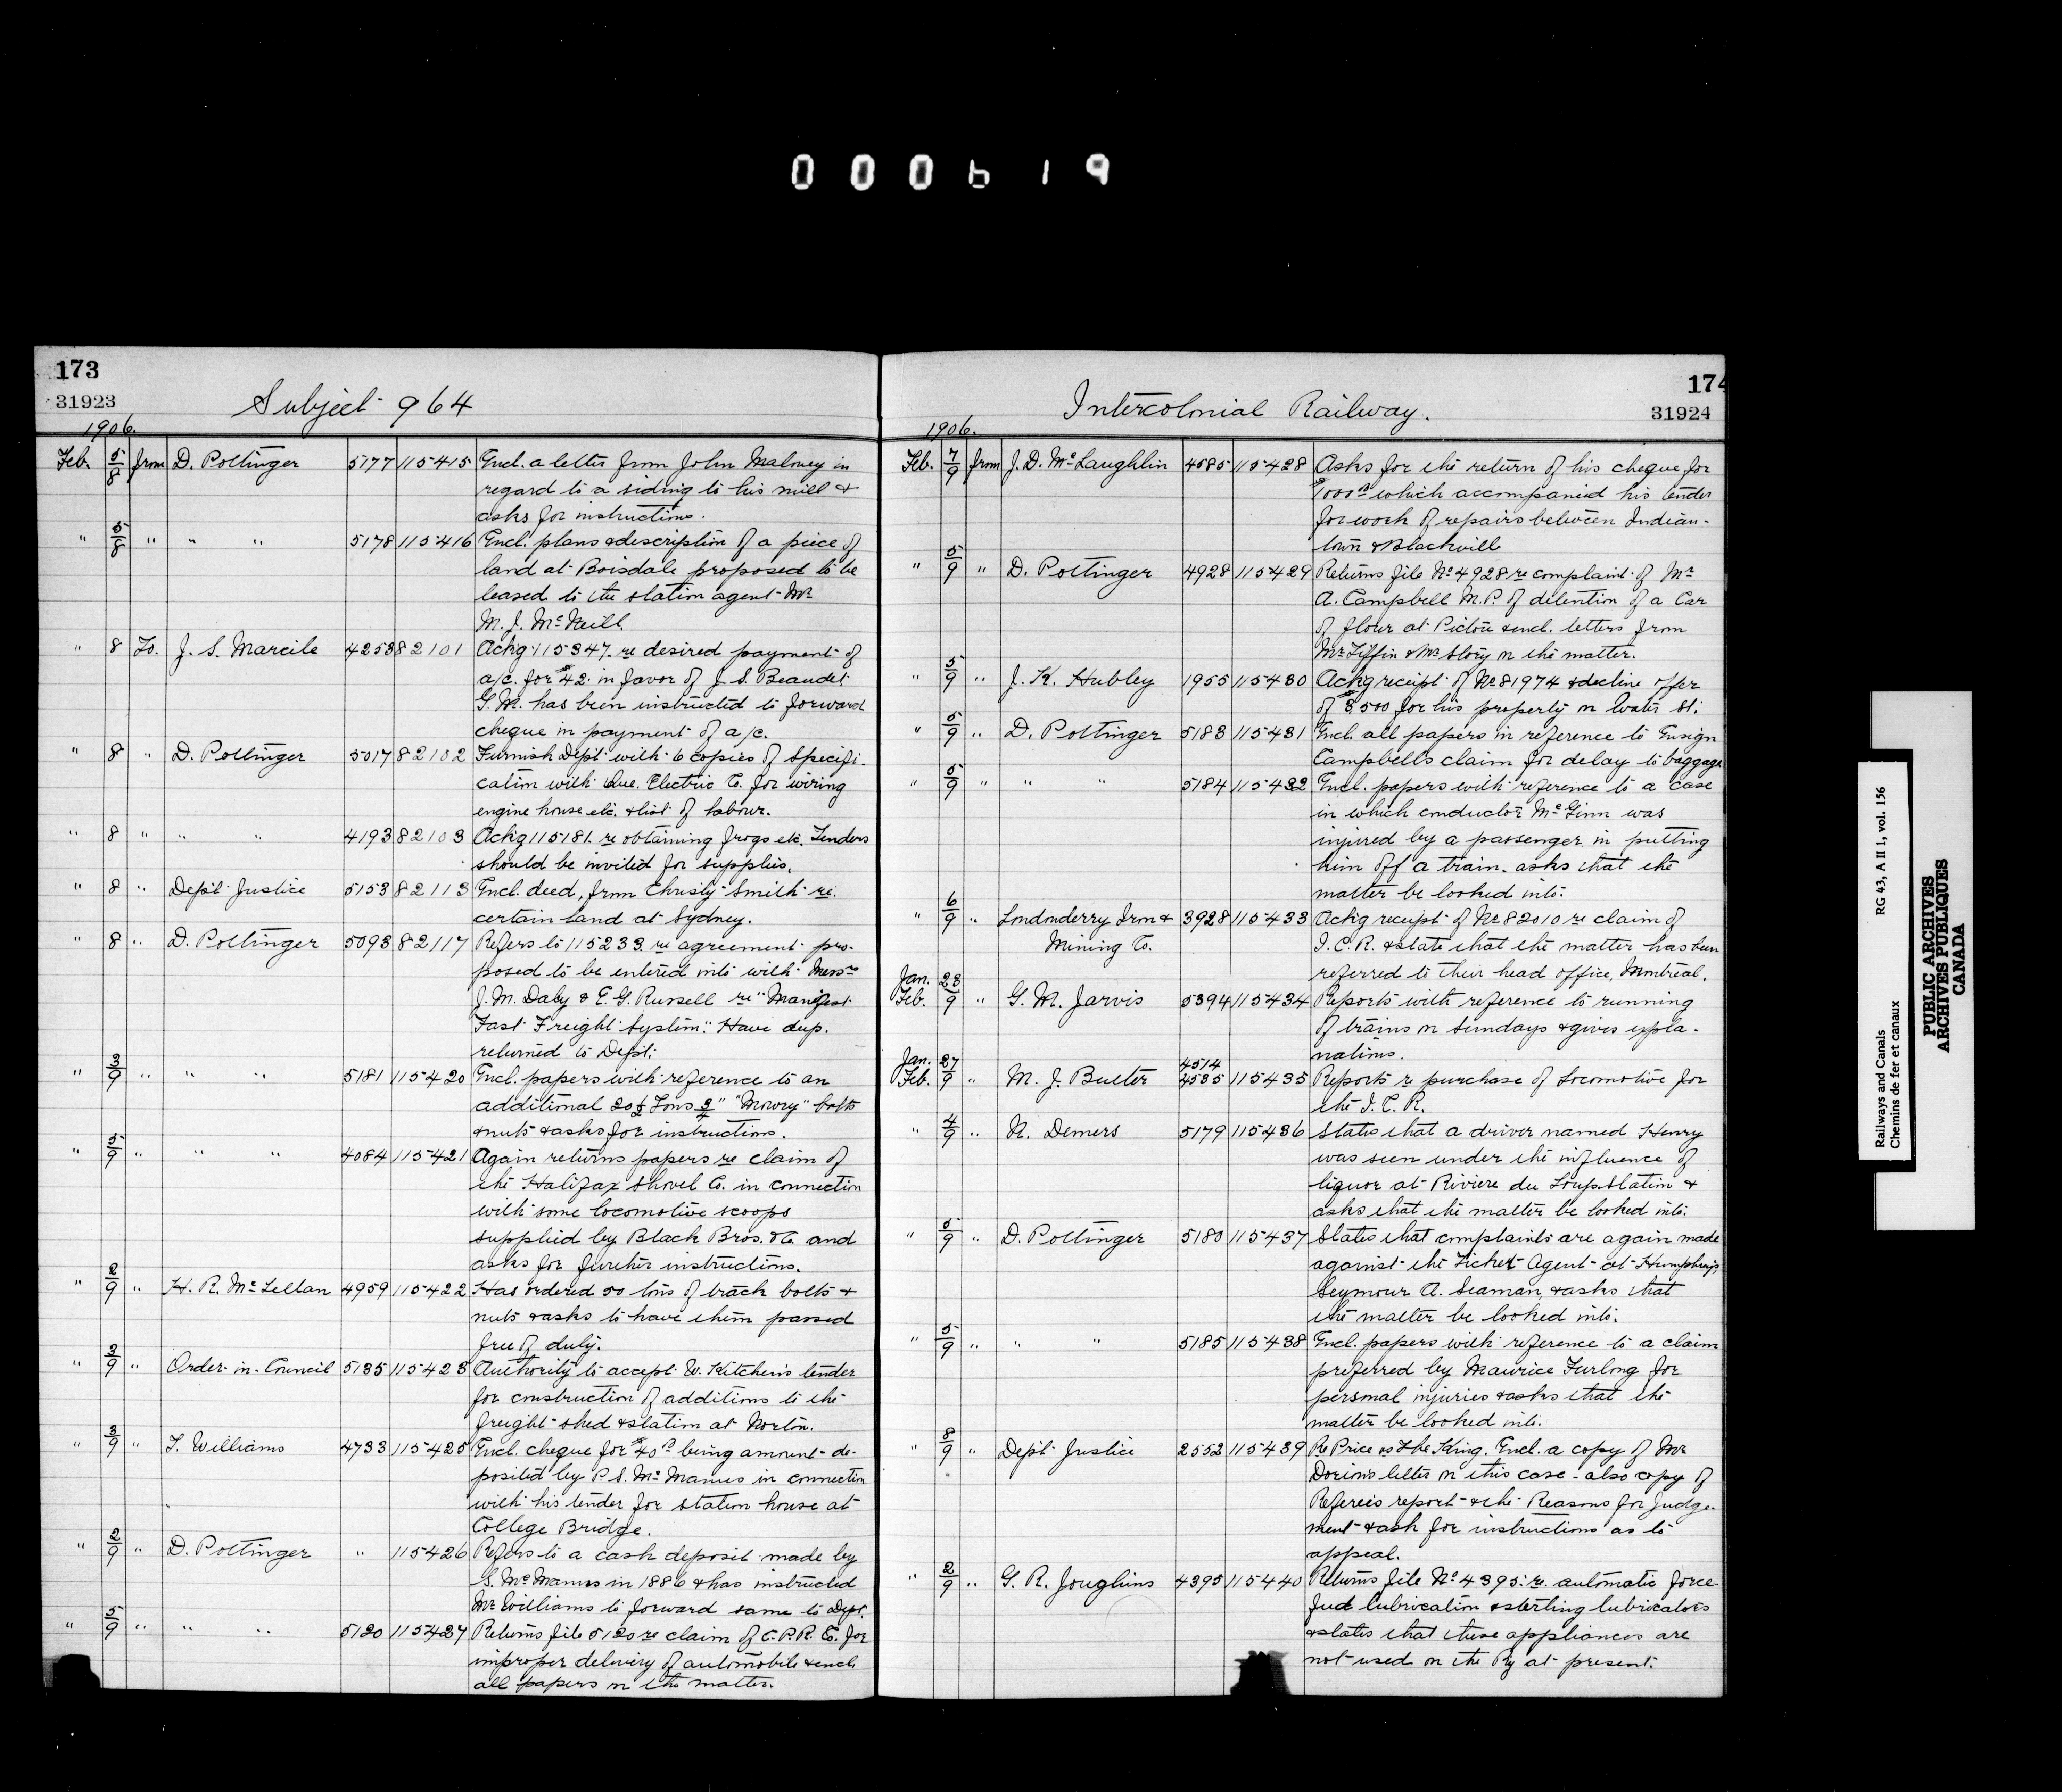 000619
173
31923
Subject 964
1906.
Feb. 5/8 from D. Pottinger 5177 115415 Encl. a letter from John Maloney in
regard to a siding to his mill &
asks for instructions.
" 5/8 " " " 5178 115416 Encl. plans & description of a piece of
land at Boisdale proposed to be
leased to the station agent Mr
M. J. McNeill.
" 8 To. J. S. Marcile 4253 82101 Ackg 115347. re desired payment of
a/c. for $42. in favor of J. S. Beaudet
G.M. has been instructed to forward
cheque in payment of a/c.
" 8 " D. Pottinger 5017 82102 Furnish Dept with 6 copies of Specifi-
cation with Que. Electric Co. for wiring
engine house etc. & list of labour.
" 8 " " " 4193 82103 Ackg 115181. re obtaining frogs etc. Tenders
should be invited for supplies.
" 8 " Dept Justice 5153 82113 Encl. deed, from Christy Smith re.
certain land at Sydney.
" 8 " D. Pottinger 5093 82117 Refers to 115233. re agreement pro-
posed to be entered into with Messrs
J. M. Daly & E. G. Russell re "Manifest
Fast Freight System." Have dup.
returned to Dept.
" 3/9 " " " 5181 115420 Encl. papers with reference to an
additional 20½ Tons ¾" "Mowry" bolts
& nuts & asks for instructions.
" 5/9 " " " 4084 115421 Again returns papers re claim of
the Halifax Shovel Co. in connection
with some locomotive scoops
supplied by Black Bros. & Co. and
asks for further instructions.
" 2/9 " H. R. McLellan 4959 115422 Has ordered 50 tons of track bolts &
nuts & asks to have them passed
free of duty.
" 3/9 " Order-in-Council 5135 115423 Authority to accept W. Kitchen's tender
for construction of additions to the
freight shed & station at Norton.
" 3/9 " T. Williams 4733 115425 Encl. cheque for $40 being amount de-
posited by P. S. McManus in connection
with his tender for station house at
College Bridge.
" 2/9 " D. Pottinger " 115426 Refers to a cash deposit made by
S. McManus in 1886 & has instructed
Mr Williams to forward same to Dept.
" 5/9 " " " 5120 115427 Returns file 5120 re claim of C.P.R. Co. for
improper delivery of automobile & encl.
all papers in the matter.
174
31924
Intercolonial Railway.
1906.
Feb. 7/9 from J. D. McLaughlin 4585 115428 Asks for the return of his cheque for
$1000 which accompanied his tender
for work of repairs between Indian-
town & Blackville
" 5/9 " D. Pottinger 4928 115429 Returns file No 4928 re complaint of Mr
A. Campbell M.P. of detention of a Car
of flour at Pictou & encl. letters from
Mr Tiffin & Mr Story in the matter.
" 5/9 " J. K. Hubley 1955 115430 Ackg receipt of No 81974 & decline offer
of $3,500 for his property on Water St.
" 5/9 " D. Pottinger 5183 115431 Encl. all papers in reference to Ensign
Campbell's claim for delay to baggage
" 5/9 " " " 5184 115432 Encl. papers with reference to a case
in which conductor McGinn was
injured by a passenger in putting
him off a train. asks that the
matter be looked into.
" 6/9 " Londonderry Iron & 3928 115433 Ackg receipt of No 82010 re claim of
Mining Co. I. C. R. & state that the matter has been
referred to their head office, Montreal.
Jan. 23
Feb. 9 " G. M. Jarvis 5394 115434 Reports with reference to running
of trains on Sundays & gives expla-
nations.
Jan. 27 4514
Feb. 9 " M. J. Butler 4535 115435 Reports re purchase of Locomotive for
the I. C. R.
" 4/9 " N. Demers 5179 115436 States that a driver named Henry
was seen under the influence of
liquor at Riviere du Loup Station &
asks that the matter be looked into.
" 5/9 " D. Pottinger 5180 115437 States that complaints are again made
against the Ticket Agent at Humphreys
Seymour A. Seaman, & asks that
the matter be looked into.
" 5/9 " " " 5185 115438 Encl. papers with reference to a claim
preferred by Maurice Furlong for
personal injuries & asks that the
matter be looked into.
" 8/9 " Dept Justice 2552 115439 Re Price vs The King. Encl. a copy of Mr
Dorion's letter in this case - also copy of
Referee's report & the Reasons for Judge-
ment & ask for instructions as to
appeal.
" 2/9 " G. R. Joughins 4395 115440 Returns file No 4395. re. automatic force
feed lubrication & sterling lubricators
& states that these appliances are
not used on the Ry at present.
Railways and Canals
Chemins de fer et canaux
RG 43, A II 1, vol. 156
PUBLIC ARCHIVES
ARCHIVES PUBLIQUES
CANADA